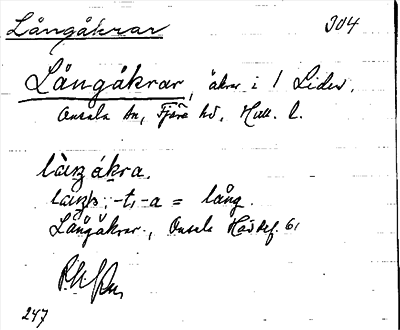 Långåkrar 304
Långåkrar, åkrar i 1 Lider,
Onsala sn, Fjäre hd, Hall. l.
låŋ åkra.
låŋ, -t, -a = lång.
Långåkrar, Onsala 61
247